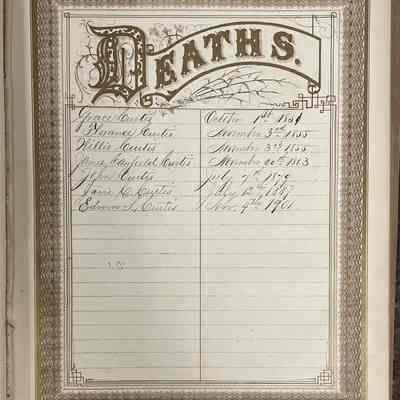 DEATHS.
Grace Curtis October 1st 1854
Florance Curtis November 3rd 1855
Willis Curtis November 3rd 1855
James Canfield Curtis November 20th 1863
John Curtis July 7th 1879
Jane C. Curtis July 12th 1887
Edwin S. Curtis Nov. 9th 1901